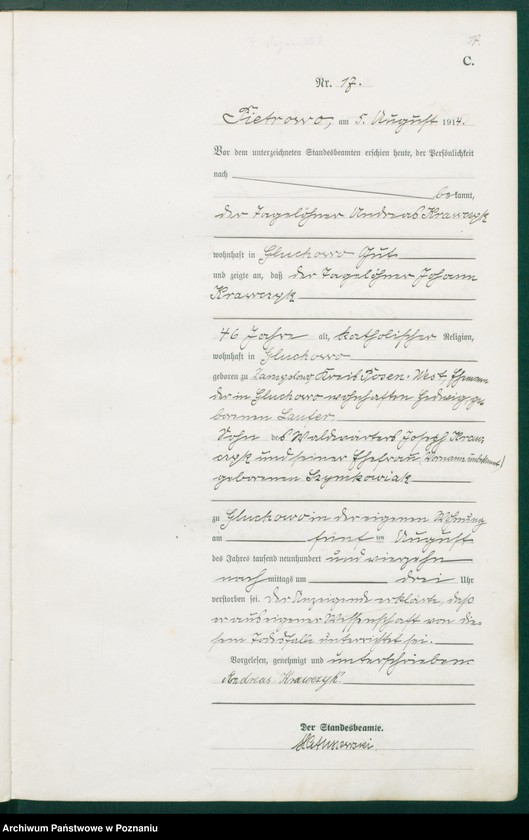 17.
C.
Nr. 17.
Pietrowo, am 5. August 1914.
Vor dem unterzeichneten Standesbeamten erschien heute, der Persönlichkeit
nach
bekannt,
der Tagelöhner Andreas Krawczyk
wohnhaft in Gluchowo Gut
und zeigte an, daß der Tagelöhner Johann
Krawczyk
46 Jahre alt, katholischer Religion,
wohnhaft in Gluchowo
geboren zu Kreis Posen-West, Ehemann
der in Gluchowo wohnhaften Hedwig, ge-
borenen
Sohn des Waldwärters Joseph Kraw-
czyk und seiner Ehefrau (Vorname unbekannt)
geborenen Szymkowiak
zu Gluchowo in der eigenen Wohnung
am fünften August
des Jahres tausend neunhundert und vierzehn
nachmittags um drei Uhr
verstorben sei. Der Anzeigende erklärte, daß
er aus eigener Wissenschaft von die-
sem Todesfalle unterrichtet sei.
Vorgelesen, genehmigt und unterschrieben
Andreas Krawczyk.
Der Standesbeamte.
Archiwum Państwowe w Poznaniu